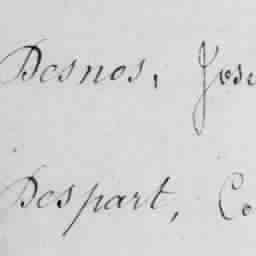 Desnos, Jose
Despart, Co